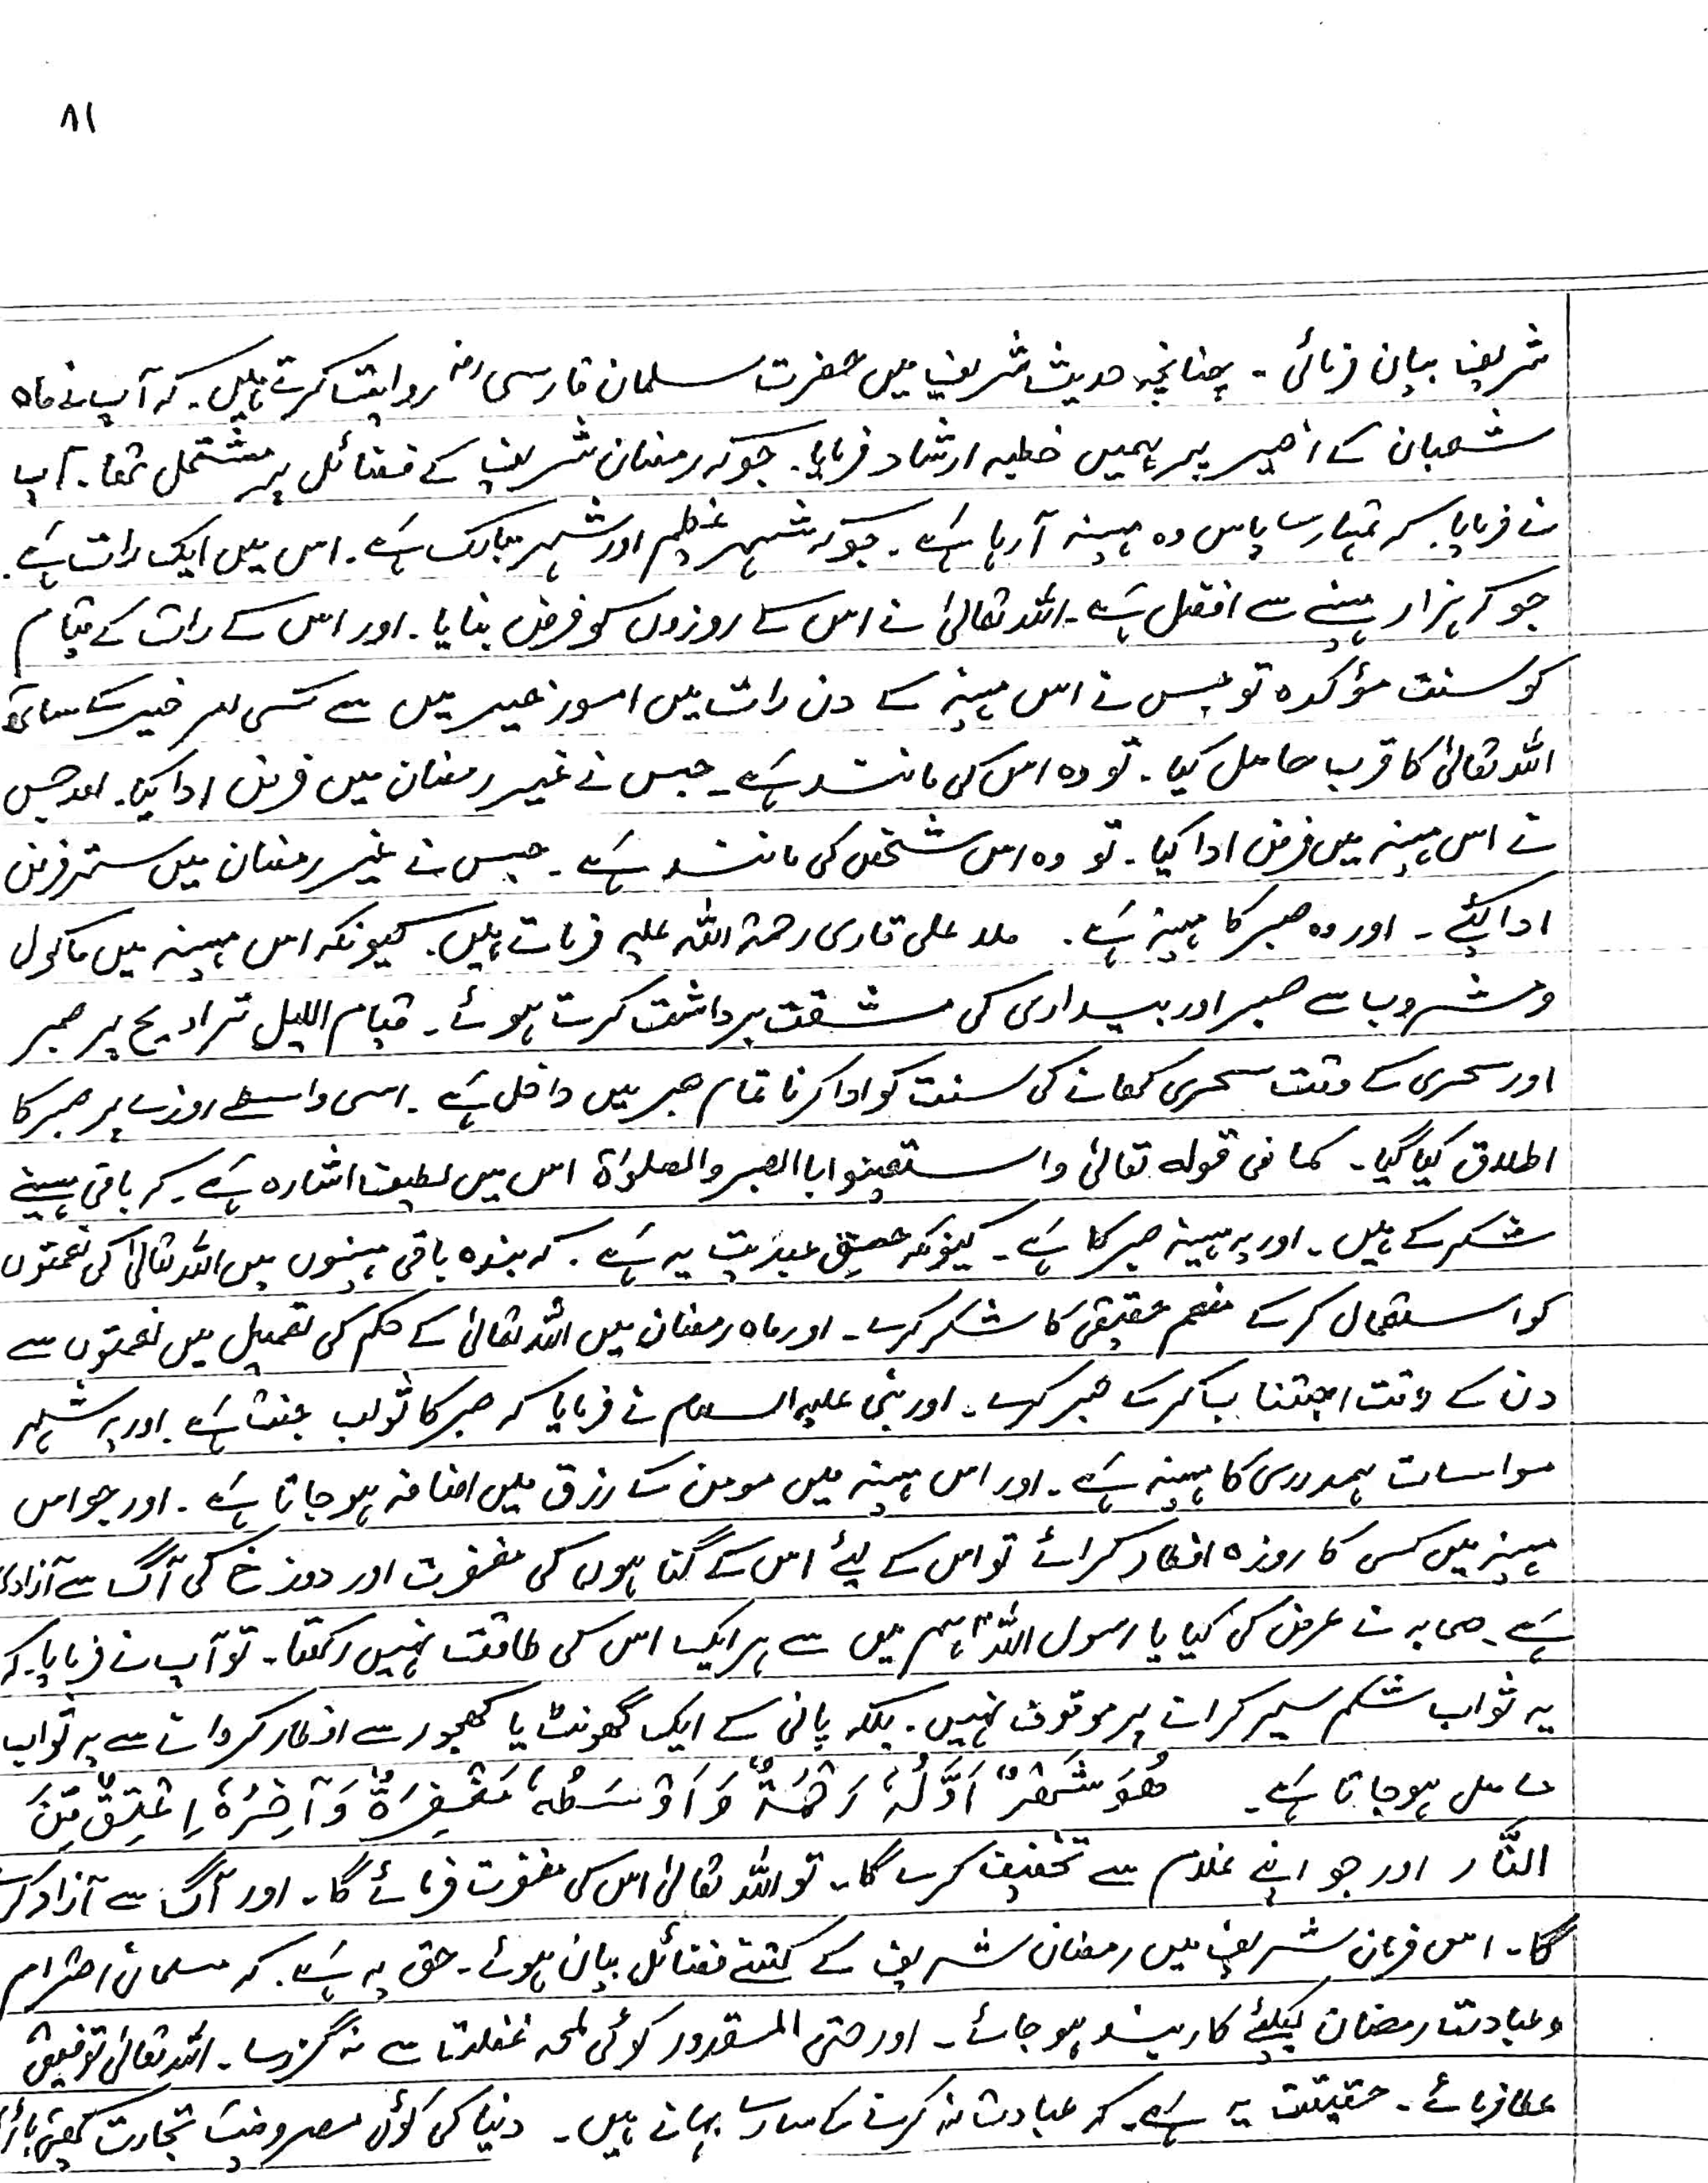 ۸۱
شریف بیان فرمائی۔ چنانچہ حدیث شریف میں حضرت سلمان فارسی رضہ روایت کرتے ہیں۔ کہ آپ نے ماہ
شعبان کے اخیر پر ہمیں خطبہ ارشاد فرمایا۔ جو کہ رمضان شریف کے فضائل پر مشتمل تھا۔ آپ
نے فرمایا کہ تمہارے پاس وہ مہینہ آ رہا ہے۔ جو کہ شہر عظیم اور شہر مبارک ہے۔ اس میں ایک رات ہے۔
جو کہ ہزار مہینے سے افضل ہے۔ اللہ تعالیٰ نے اس کے روزوں کو فرض بنایا۔ اور اس کے رات کے قیام
کو سنت مؤکدہ تو جس نے اس مہینہ کے دن رات میں امور خیر میں سے کسی امر خیر کے ساتھ
اللہ تعالیٰ کا قرب حاصل کیا۔ تو وہ اس کی مانند ہے۔ جس نے غیر رمضان میں فرض ادا کیا۔ اور جس
نے اس مہینہ میں فرض ادا کیا۔ تو وہ اس شخص کی مانند ہے۔ جس نے غیر رمضان میں ستر فرض
ادا کیئے۔ اور وہ صبر کا مہینہ ہے۔ ملا علی قاری رحمۃ اللہ علیہ فرماتے ہیں۔ کیونکہ اس مہینہ میں ماکول
ومشروب سے صبر اور بیداری کی مشقت برداشت کرتے ہوئے۔ قیام اللیل تراویح پر صبر
اور سحری کے وقت سحری کھانے کی سنت کو ادا کرنا تمام صبر میں داخل ہے۔ اسی واسطے روزے پر صبر کا
اطلاق کیا گیا۔ کما فی قولہ تعالیٰ واستعینوا باالصبر والصلوٰۃ اس میں لطیف اشارہ ہے۔ کہ باقی مہینے
شکر کے ہیں۔ اور یہ مہینہ صبر کا ہے۔ کیونکہ عبدیت یہ ہے۔ کہ بندہ باقی مہینوں میں اللہ تعالیٰ کی نعمتوں
کو استعمال کر کے منعم حقیقی کا شکر کرے۔ اور ماہ رمضان میں اللہ تعالیٰ کے حکم کی تعمیل میں نعمتوں سے
دن کے وقت اجتناب کر کے صبر کرے۔ اور نبی علیہ السلام نے فرمایا کہ صبر کا ثواب جنت ہے۔ اور یہ شہر
مواسات ہمدردی کا مہینہ ہے۔ اور اس مہینہ میں مومن کے رزق میں اضافہ ہو جاتا ہے۔ اور جو اس
مہینہ میں کسی کا روزہ افطار کرائے تو اس کے لیئے اس کے گناہوں کی مغفرت اور دوزخ کی آگ سے آزادی
ہے۔ صحابہ نے عرض کی کیا یا رسول اللہ ہم میں سے ہر ایک اس کی طاقت نہیں رکھتا۔ تو آپ نے فرمایا۔ کہ
یہ ثواب شکم سیر کرانے پر موقوف نہیں۔ بلکہ پانی کے ایک گھونٹ یا کھجور سے افطار کروانے سے یہ ثواب
حاصل ہو جاتا ہے۔ ھُوَ شَھْرٌ اَوَّلُہٗ رَحْمَۃٌ وَ اَوْسَطُہٗ مَغْفِرَۃٌ وَ آخِرُہٗ اِعْتِقٌ مِّنَ
النَّار اور جو اپنے غلام سے تخفیف کرے گا۔ تو اللہ تعالیٰ اس کی مغفرت فرمائے گا۔ اور آگ سے آزاد کرے
گا۔ اس فرمان شریف میں رمضان شریف کے کتنے فضائل بیان ہوئے۔ حق یہ ہے۔ کہ مسلمان احترام
وعبادت رمضان کیلئے کاربند ہو جائے۔ اور حتی المقدور کوئی لمحہ غفلت سے نہ گزرے۔ اللہ تعالیٰ توفیق
عطا فرمائے۔ حقیقت یہ ہے۔ کہ عبادت نہ کرنے کے سارے بہانے ہیں۔ دنیا کی کوئی مصروفیت تجارت کھیتی باڑی